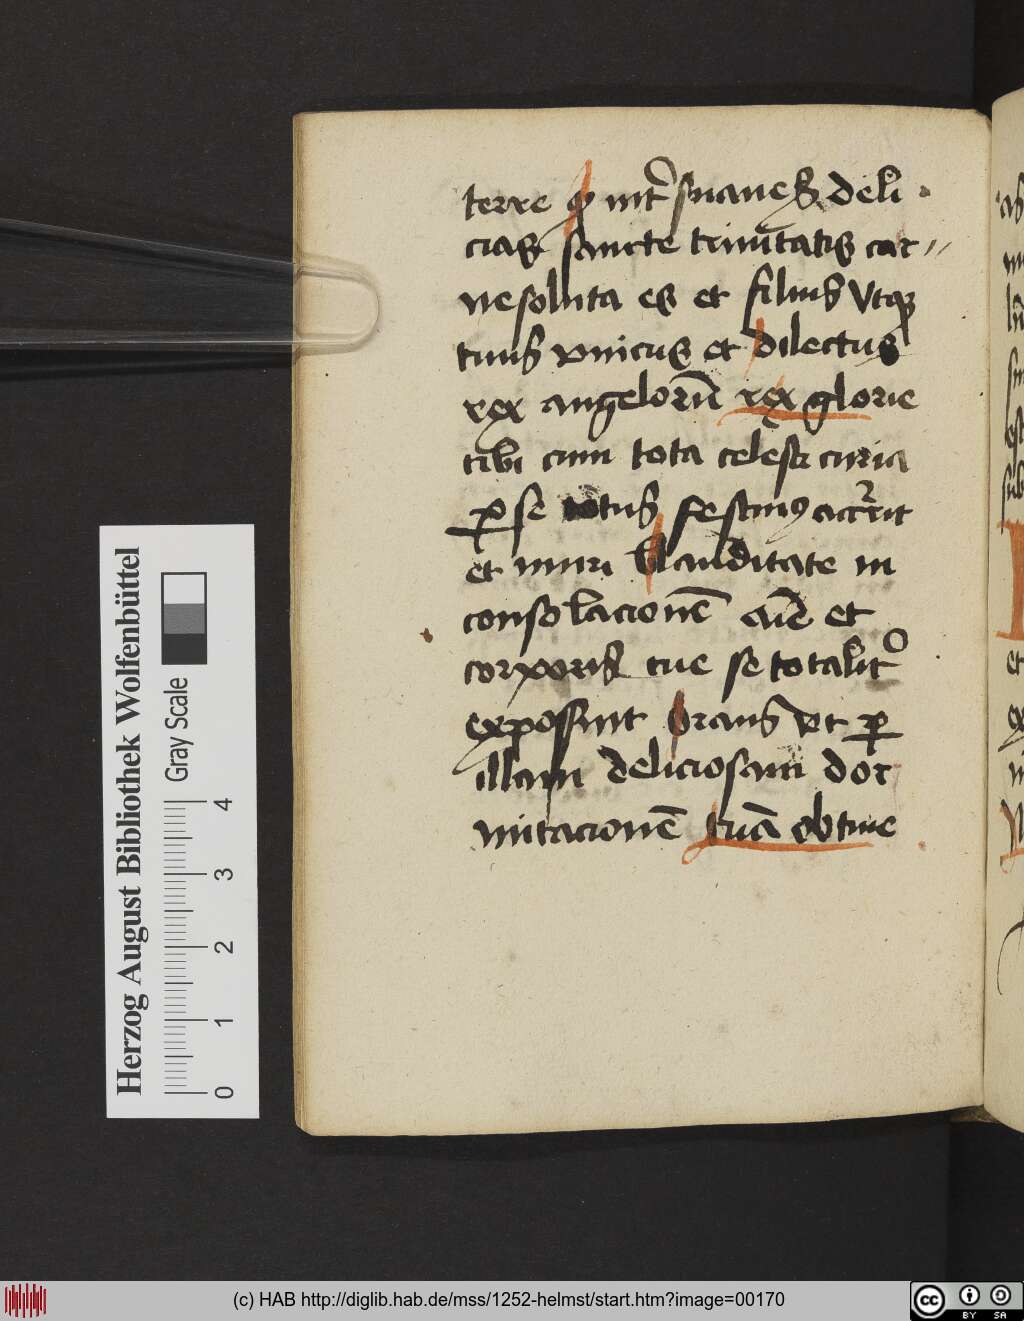 terre qͥ int̉ suaues deli
cias sancte trinitatis car〃
ne soluta es et filius Vtqꝫ
tuus vnicus et dilectus
rex angeloꝝ̄ rex glorie
tibi cum tota celesti curia
ꝑ se totus festinꝰ
et miri Claritate in
consolacionē aīe et
corporis tue se totalit̉
exposuit Oramꝰ vt ꝑ
illam deliciosam dor
mitacionē tuā obtine
Herzog August Bibliothek Wolfenbüttel
Gray Scale
0 1 2 3 4
(c) HAB http://diglib.hab.de/mss/1252-helmst/start.htm?image=00170
cc BY SA